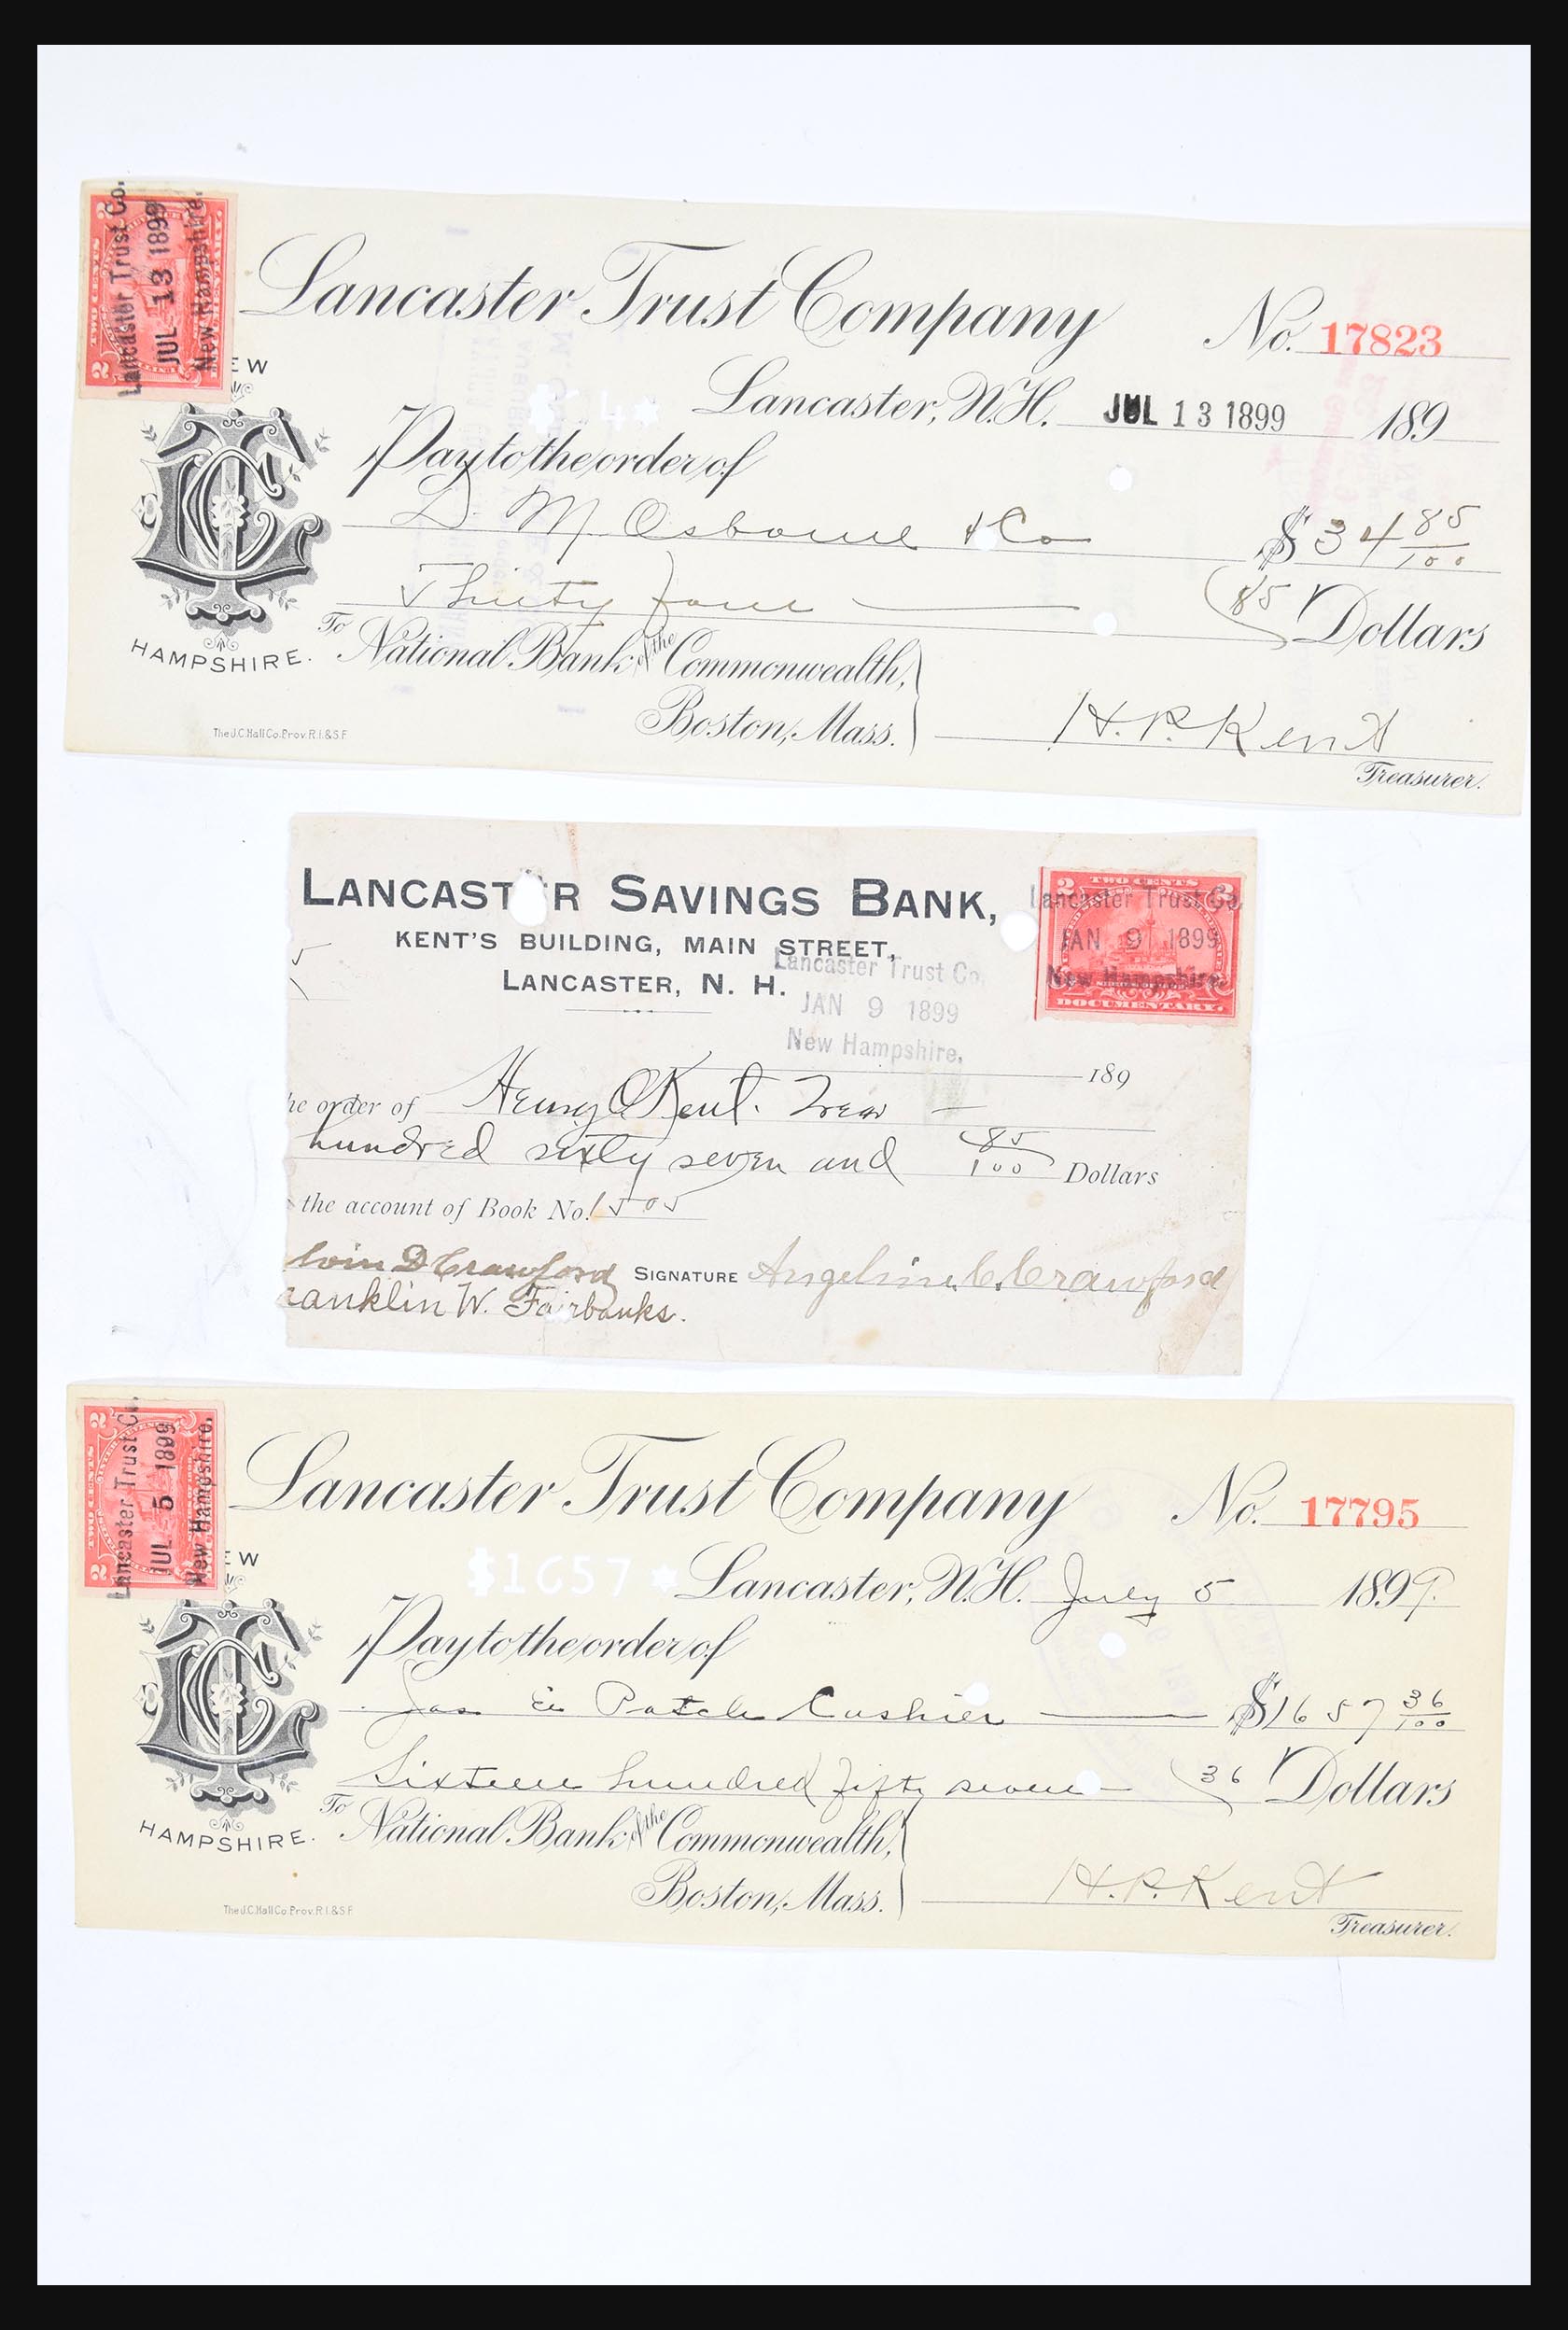 Lancaster Trust Co.
JUL 13 1899
New Hampshire.
TWO CENTS
Lancaster Trust Company No. 17823
Lancaster, N.H. JUL 13 1899 189
Pay to the order of
D. M. Osborne & Co $34 85/100
Thirty four (85 Dollars
To National Bank of the Commonwealth,
Boston, Mass.
H. P. Kent
Treasurer.
EW
HAMPSHIRE.
The J.C. Hall Co. Prov. R.I. & S.F.
LANCAST R SAVINGS BANK,
KENT'S BUILDING, MAIN STREET,
LANCASTER, N. H.
Lancaster Trust Co.
JAN 9 1899
New Hampshire.
TWO CENTS
Lancaster Trust Co.
JAN 9 1899
New Hampshire.
DOCUMENTARY.
189
he order of Henry O Kent. Treas
hundred sixty seven and 85/100 Dollars
the account of Book No. 1505
lvin D Crawford SIGNATURE Angeline C. Crawford
ranklin W. Fairbanks.
Lancaster Trust Co.
JUL 5 1899
New Hampshire.
TWO CENTS
Lancaster Trust Company No. 17795
$1657 Lancaster, N.H. July 5 1899.
Pay to the order of
Jas E Patch Cashier $1657 36/100
Sixteen hundred fifty seven (36 Dollars
To National Bank of the Commonwealth,
Boston, Mass.
H. P. Kent
Treasurer.
EW
HAMPSHIRE.
The J.C. Hall Co. Prov. R.I. & S.F.